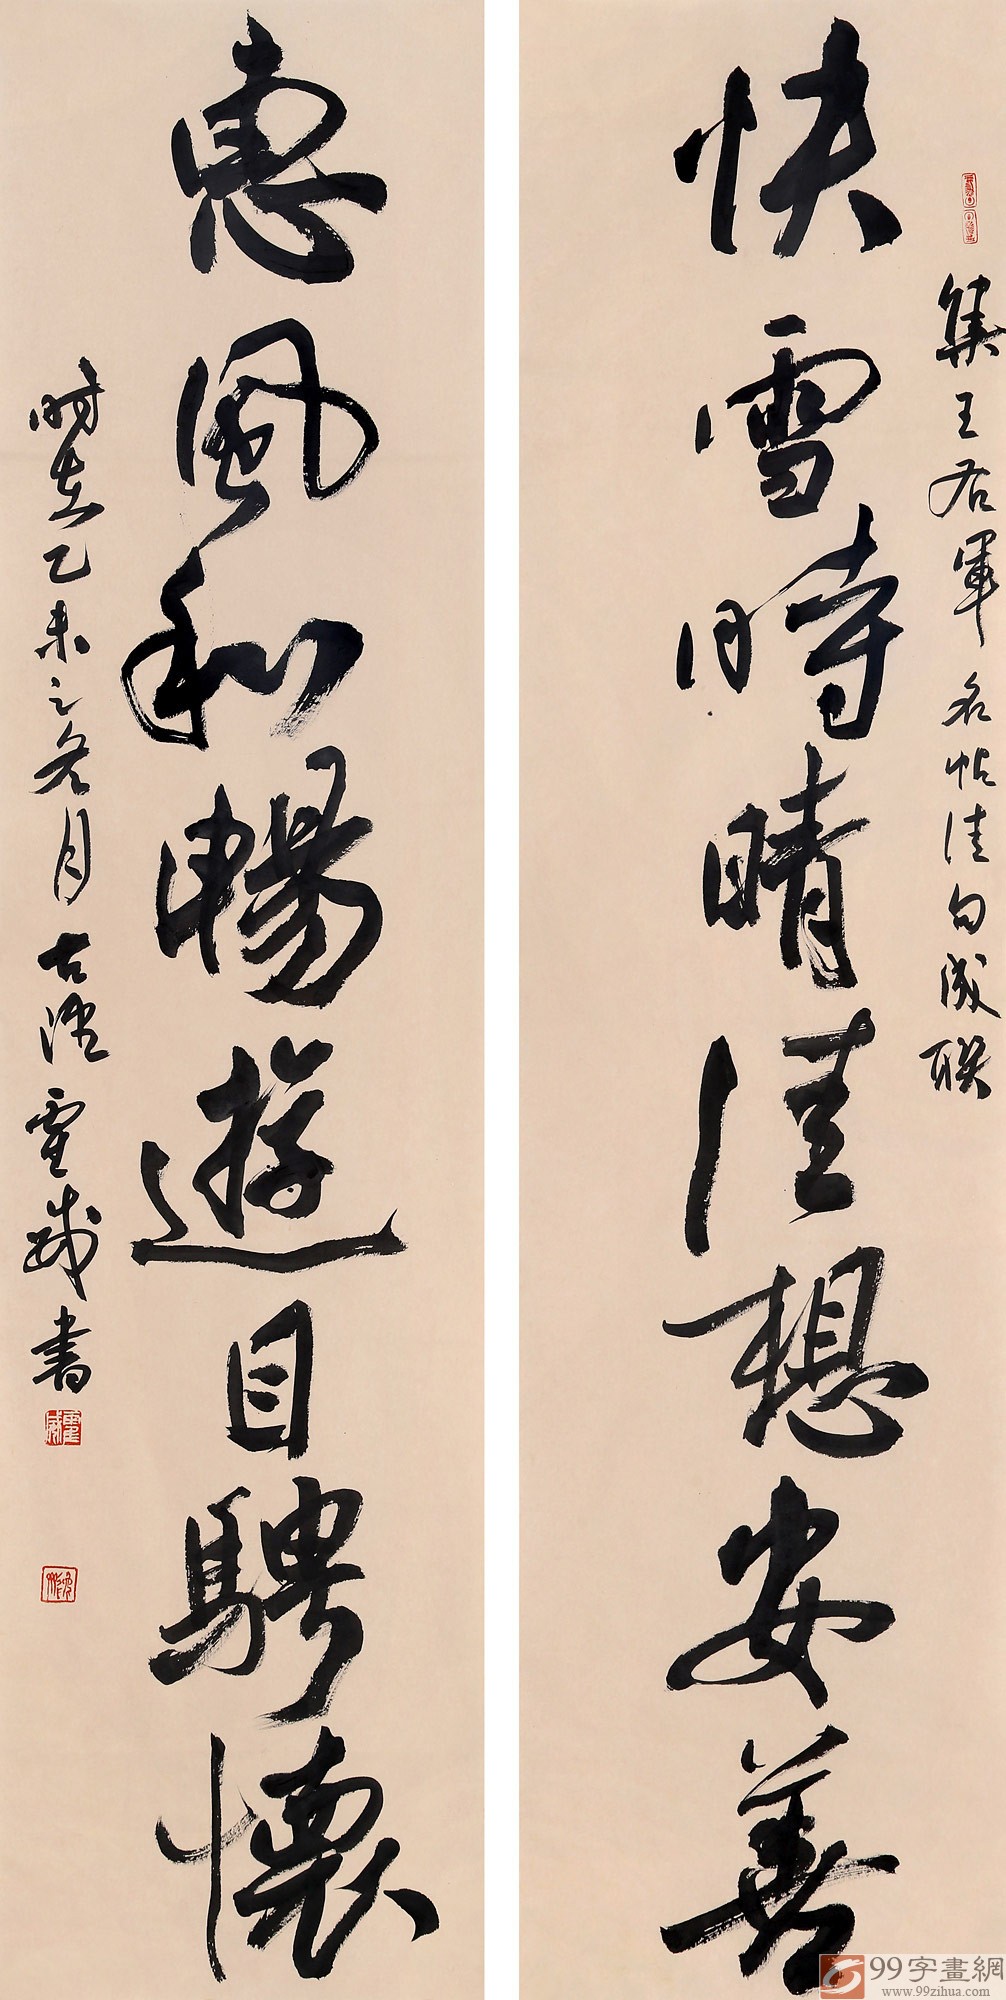 集王右军名帖佳句成联
快雪時晴佳想安善
惠風和暢遊目騁懷
時在乙未之冬月古陸重威書
99字畫網
www.99zihua.com